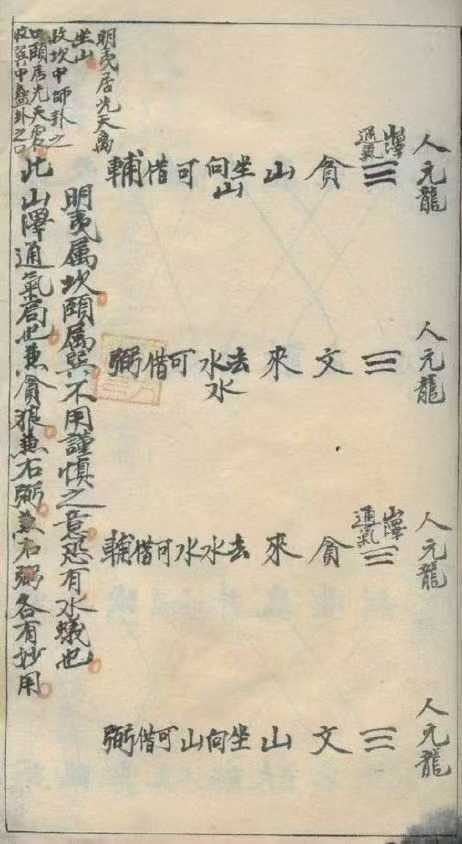 人元龍
山澤
通氣
貪山坐山向可借輔
人元龍
文來去水水可借弼
人元龍
山澤
通氣
貪來去水水可借輔
人元龍
文山坐向山可借弼
明夷居先天离
坐山
收坎中師卦之
口頤居先天震
收巽中蠱卦之口
明夷属坎頤属巽不用謹慎之意恐有水蟻也
此山澤通氣局也兼貪狼兼右弼兼右弼各有妙用